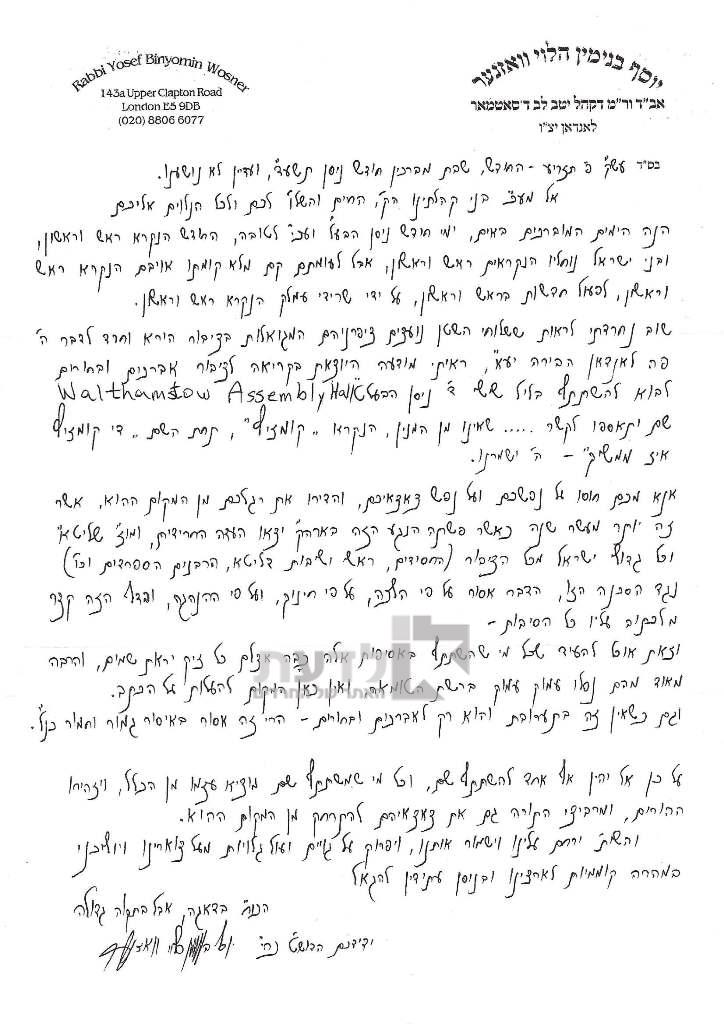 Rabbi Yosef Binyomin Wosner
143a Upper Clapton Road
London E5 9DB
(020) 8806 6077
יוסף בנימין הלוי וואזנער
אב״ד ור״מ דקהל יטב לב ד׳סאטמאר
לאנדאן יצ״ו
בס״ד עש״ק פ׳ תזריע - החודש, שבת מברכין חודש ניסן תשע״ד, ועדיין לא נושענו.
אל מע״כ בני קהלתינו הק׳, החיים והשלו׳ לכם ולכל הנלוים אליכם
הנה הימים המבורכים באים, ימי חודש ניסן הבעל״ט ועכ״י לטובה, החודש הנקרא ראש וראשון,
ובני ישראל נוחליו הנקראים ראש וראשון, אבל לעומתם קם מלא קומתו אויבם הנקרא ראש
וראשון, לפעול חדשות בראש וראשון, על ידי שרידי עמלק הנקרא ראש וראשון.
שוב נחרדתי לראות ששלוחי השטן נועצים ציפרניהם המגואלות בציבור הירא וחרד לדבר ה׳
פה לאנדאן הבירה יע״א, ראיתי מודעה היוצאת בקריאה לציבור אברכים ובחורים
לבוא להשתתף בליל ששי ד׳ ניסן הבעל״ט Walthamstow Assembly Hall
שם יתאספו לקשר ..... שאינו מן המנין, הנקרא ״קומזיץ״, תחת השם ״די קומזיץ
איז ממשיך״ - ה׳ ישמרנו.
אנא מכם חוסו על נפשכם ועל נפש צאצאיכם, והדירו את רגלכם מן המקום ההוא, אשר
זה יותר מעשר שנה כאשר פשתה הנגע הזה בארה״ק יצאו העדה החרדית, ומו״צ שליט״א
וכל גדולי ישראל מכל הציבור (החסידים, ראשי ישיבות דליטא, הרבנים הספרדים וכו׳)
נגד הסכנה הזו, הדבר אסור על פי הלכה, על פי חינוך, ועל פי ההנהגה, והדף הזה קצר
מלכתוב עליו כל הסיבות -
וזאת אוכל להעיד שכל מי שהשתתף באסיפות אלה כבר אצלם כל זיק יראת שמים, והרבה
מאוד מהם נפלו עמוק עמוק ברשת הטומאה ואין כאן המקום להעלות על הכתב.
וגם כשאין זה בתערובת והוא רק לאברכים ובחורים - הרי זה אסור באיסור גמור וחמור כנ״ל.
על כן אל יהין אף אחד להשתתף שם, וכל מי שמשתתף שם מוציא עצמו מן הכלל, ויזהירו
ההורים, ומרביצי התורה גם את צאצאיהם להתרחק מן המקום ההוא.
והשי״ת ירחם עלינו וישמור אותנו, ויפרוק עול גויים ועול גלויות מעל צוארינו ויוליכני
במהרה קוממיות לארצינו ובניסן עתידין להגאל
הכות׳ בדאגה, אבל בתקוה גדולה
ידידכם הדושט״ נמ׳